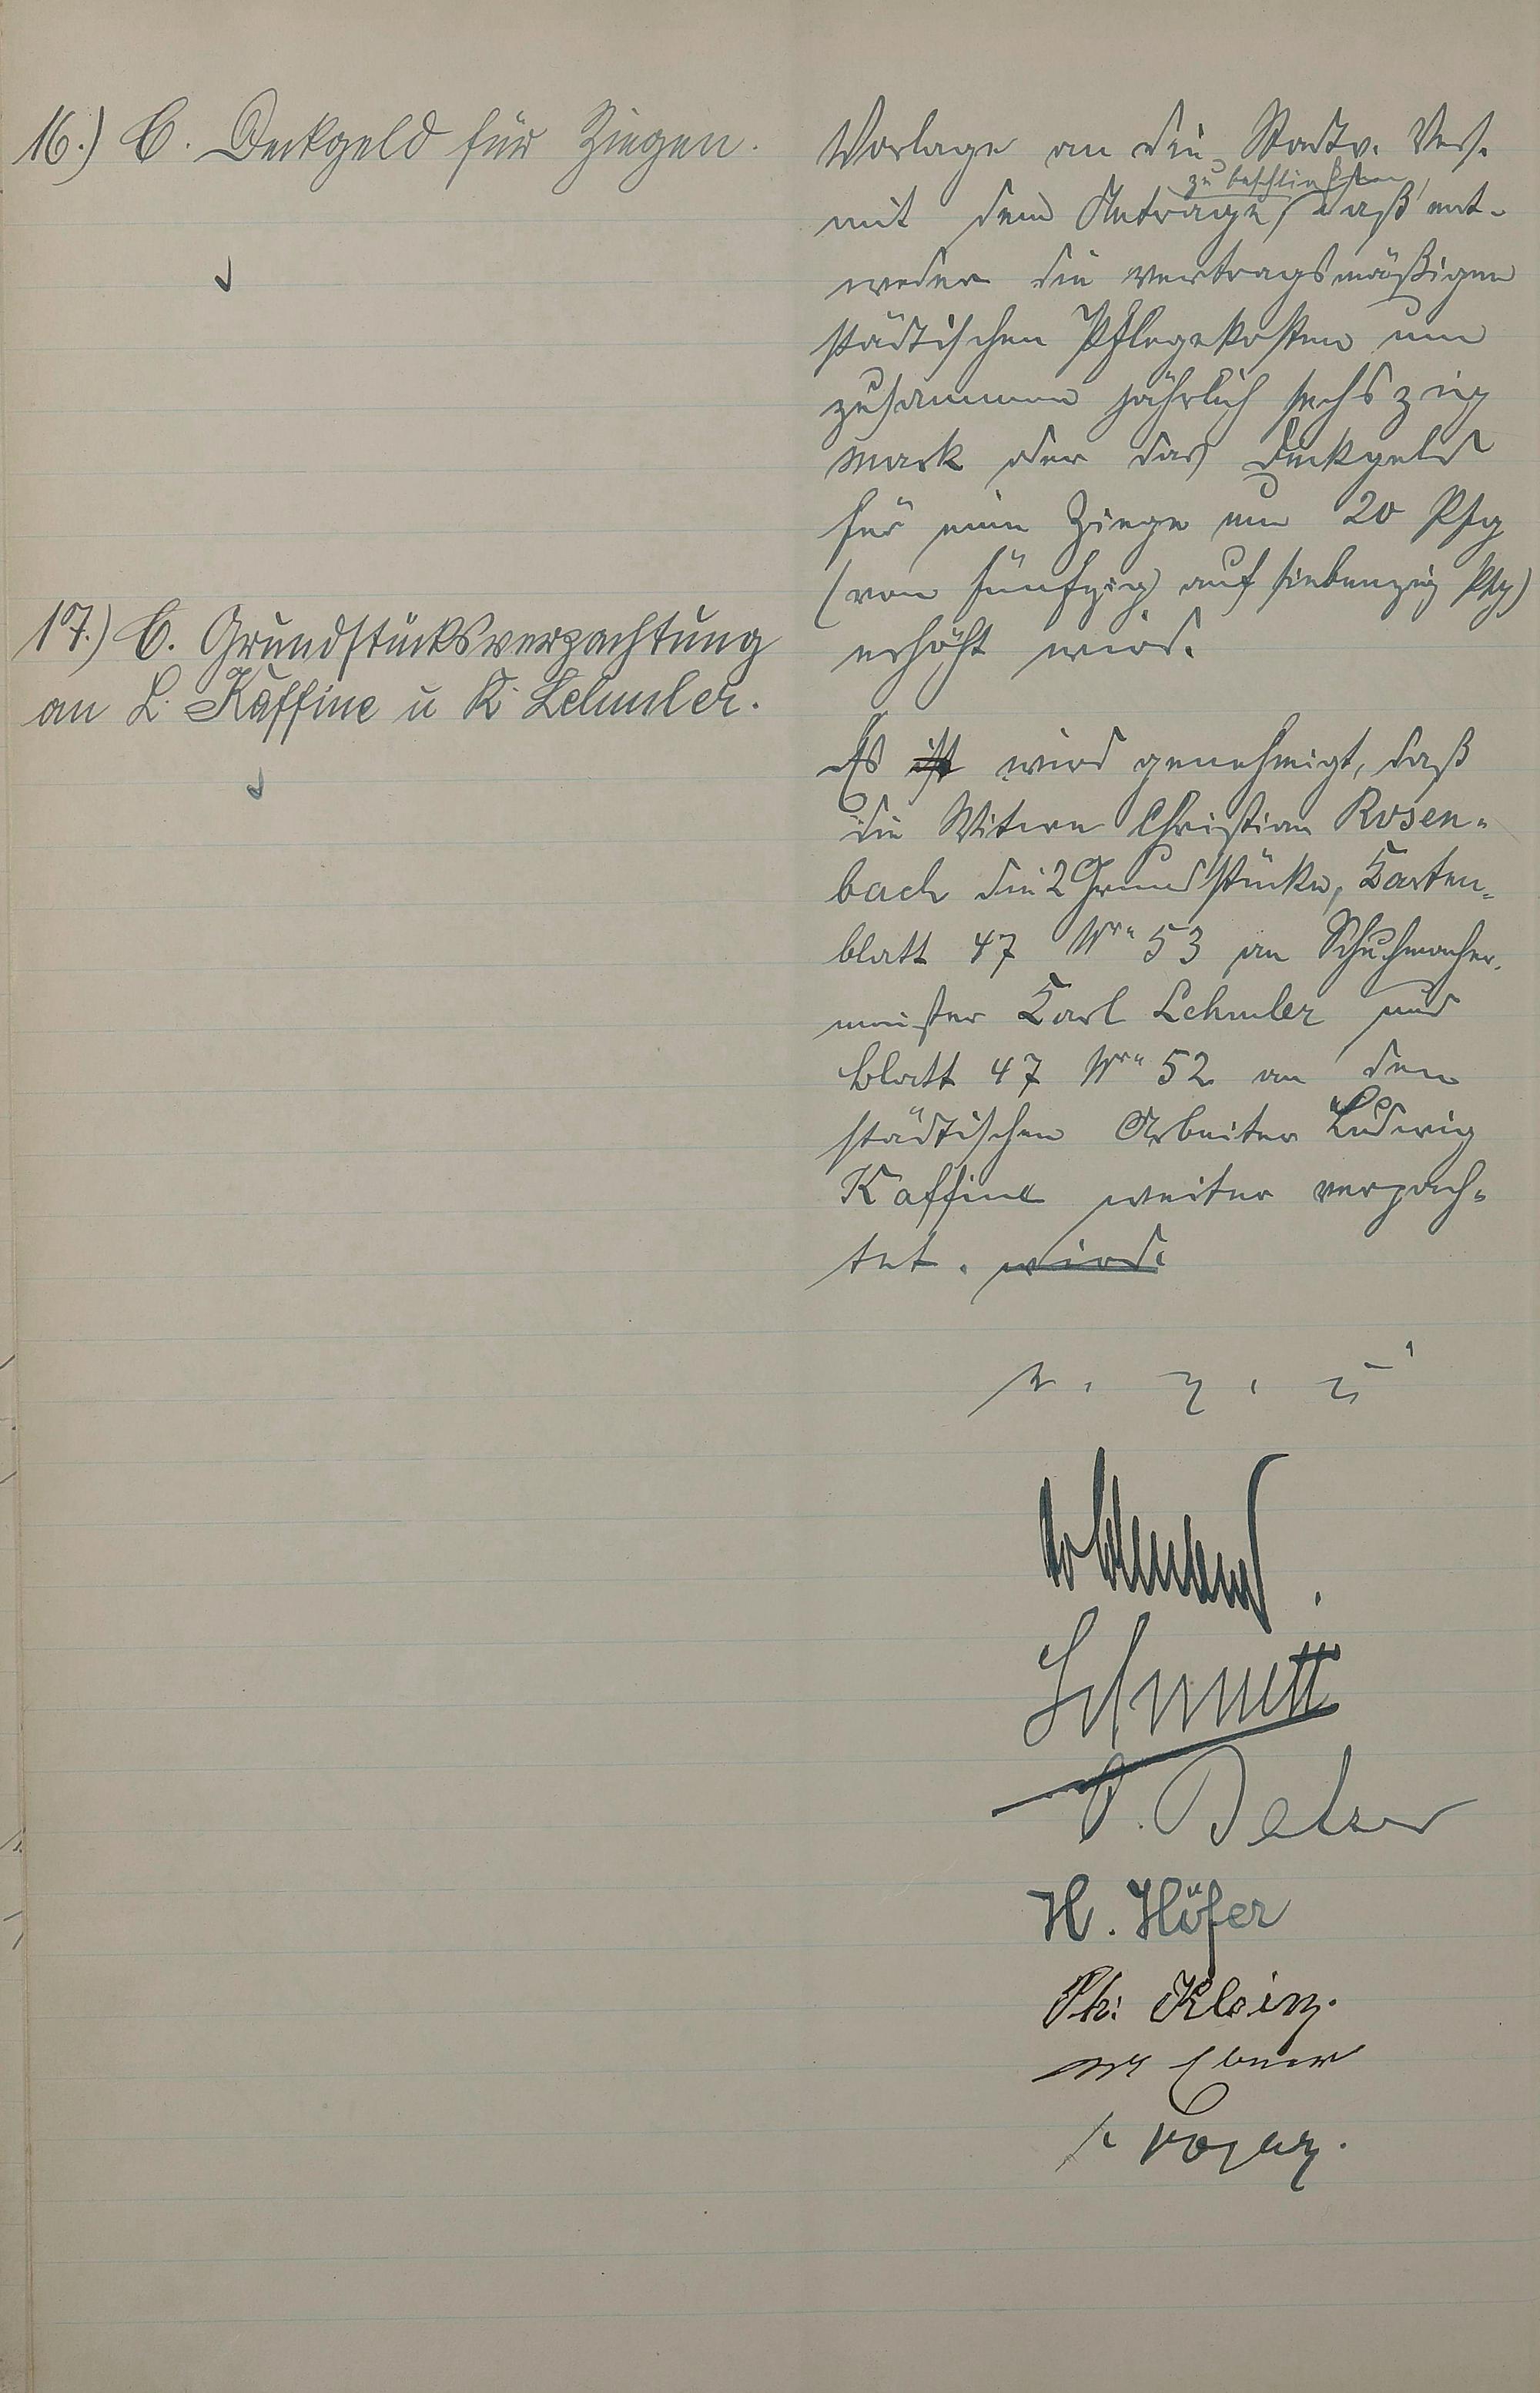 16.) C. Deckgeld für Ziegen.
Vorlage an die Stadtv. Vers.
zu beschließen,
mit dem Antrage, daß ent-
weder die vertragsmäßigen
städtischen Pflegekosten um
zusammen jährlich sechszig
Mark oder das Deckgeld
für eine Ziege um 20 Pfg
(von fünfzig auf siebenzig Pfg)
erhöht wird.
17.) C. Grundstücksverpachtung
an L. Kaffine u K. Lehmler.
Es ist wird genehmigt, daß
die Witwe Christian Rosen-
bach die 2 Grundstücke, Karten-
blatt 47 Nr. 53 an Schuhmacher-
meister Karl Lehmler und
blatt 47 Nr. 52 an den
städtischen Arbeiter Ludwig
Kaffine weiter verpach-
tet. wird.
v. g. u.
Schmitt
H. Höfer
Ph. Klein.